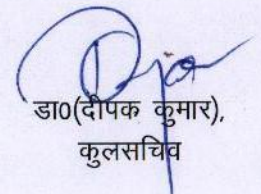 डा0(दीपक कुमार),
कुलसचिव